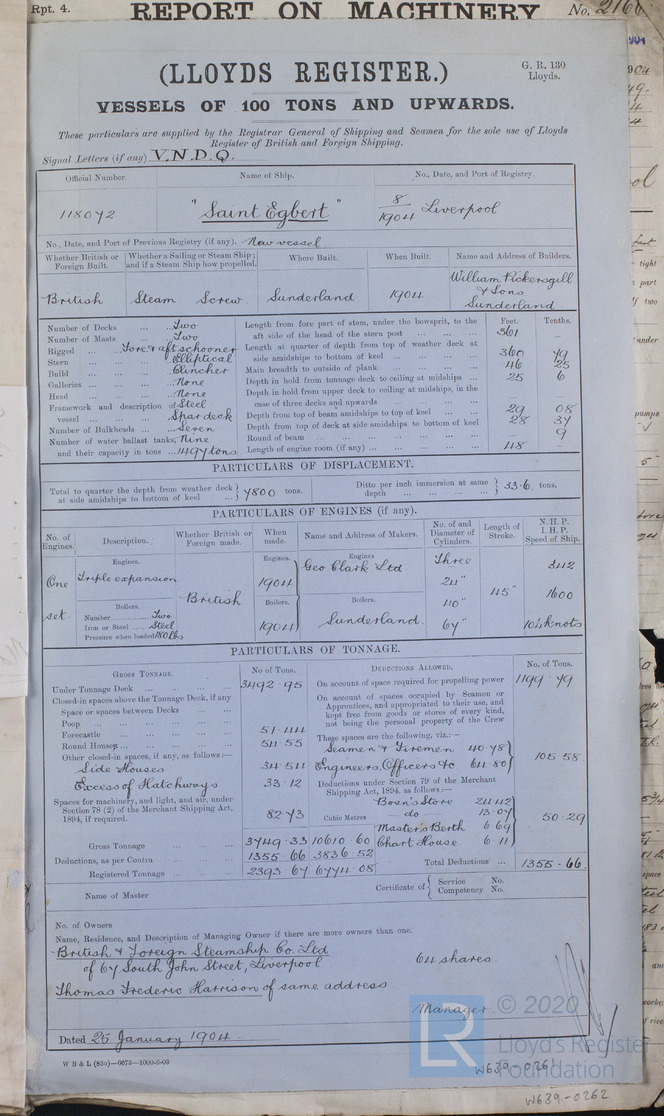 Rpt. 4. REPORT ON MACHINERY No. 2166
(LLOYDS REGISTER.)
G. R. 130
Lloyds.
VESSELS OF 100 TONS AND UPWARDS.
These particulars are supplied by the Registrar General of Shipping and Seamen for the sole use of Lloyds
Register of British and Foreign Shipping.
Signal Letters (if any) V.N.D.Q.
Official Number. Name of Ship. No., Date, and Port of Registry.
118072 "Saint Egbert" 8/1904 Liverpool
No., Date, and Port of Previous Registry (if any). New vessel
Whether British or Foreign Built. Whether a Sailing or Steam Ship; and if a Steam Ship how propelled. Where Built. When Built. Name and Address of Builders.
British Steam Screw Sunderland 1904 William Pickersgill & Sons Sunderland
Number of Decks ... ... Two
Number of Masts ... ... Two
Rigged ... Fore & aft schooner
Stern ... ... Elliptical
Build ... ... Clincher
Galleries ... ... None
Head ... ... None
Framework and description of vessel ... ... Steel Spar deck
Number of Bulkheads ... Seven
Number of water ballast tanks, Nine
and their capacity in tons ... 1497 tons
Feet. Tenths.
Length from fore part of stem, under the bowsprit, to the aft side of the head of the stern post ... 361 –
Length at quarter of depth from top of weather deck at side amidships to bottom of keel ... 360 79
Main breadth to outside of plank ... 46 25
Depth in hold from tonnage deck to ceiling at midships ... 25 6
Depth in hold from upper deck to ceiling at midships, in the case of three decks and upwards ... – –
Depth from top of beam amidships to top of keel ... 29 08
Depth from top of deck at side amidships to bottom of keel 28 37
Round of beam ... – 9
Length of engine room (if any) ... 48 –
PARTICULARS OF DISPLACEMENT.
Total to quarter the depth from weather deck at side amidships to bottom of keel ... 7800 tons. Ditto per inch immersion at same depth ... 33.6 tons.
PARTICULARS OF ENGINES (if any).
No. of Engines. Description. Whether British or Foreign made. When made. Name and Address of Makers. No. of and Diameter of Cylinders. Length of Stroke. N.H.P. I.H.P. Speed of Ship.
Engines. Engines. Engines
One Triple expansion 1904 Geo. Clark Ltd. Three 342
British 24" 45" 1600
Boilers. Boilers. Boilers.
set Number ... Two 40"
Iron or Steel ... Steel 1904 Sunderland 67" 10¼ knots
Pressure when loaded 180 lbs
PARTICULARS OF TONNAGE.
GROSS TONNAGE. No. of Tons. DEDUCTIONS ALLOWED. No. of Tons.
Under Tonnage Deck ... 3492.95
Closed-in spaces above the Tonnage Deck, if any
Space or spaces between Decks
Poop
Forecastle 51.44
Round Houses 54.55
Other closed-in spaces, if any, as follows:—
Side Houses 34.54
Excess of Hatchways 33.12
Spaces for machinery, and light, and air, under Section 78 (2) of the Merchant Shipping Act, 1894, if required. 82.73
Gross Tonnage 3749.33 10610.60
Deductions, as per Contra 1355.66 3836.52
Registered Tonnage 2393.67 6774.08
On account of space required for propelling power 1199.79
On account of spaces occupied by Seamen or Apprentices, and appropriated to their use, and kept free from goods or stores of every kind, not being the personal property of the Crew
These spaces are the following, viz.:—
Seamen & Firemen 40.78
Engineers, Officers &c 64.80 105.58
Deductions under Section 79 of the Merchant Shipping Act, 1894, as follows:—
Bosn's Store 24.42
Cubic Metres do 13.07 50.29
Master's Berth 6.69
Chart House 6.11
Total Deductions ... 1355.66
Name of Master Certificate of Service No. Competency No.
No. of Owners
Name, Residence, and Description of Managing Owner if there are more owners than one.
British & Foreign Steamship Co. Ltd
of 67 South John Street, Liverpool 64 shares
Thomas Frederic Harrison of same address
Manager
Dated 25 January 1904.
W B & L (83o)—6673—1000-6-03
LR © 2020
Lloyd's Register
Foundation
W639-0261
W639-0262